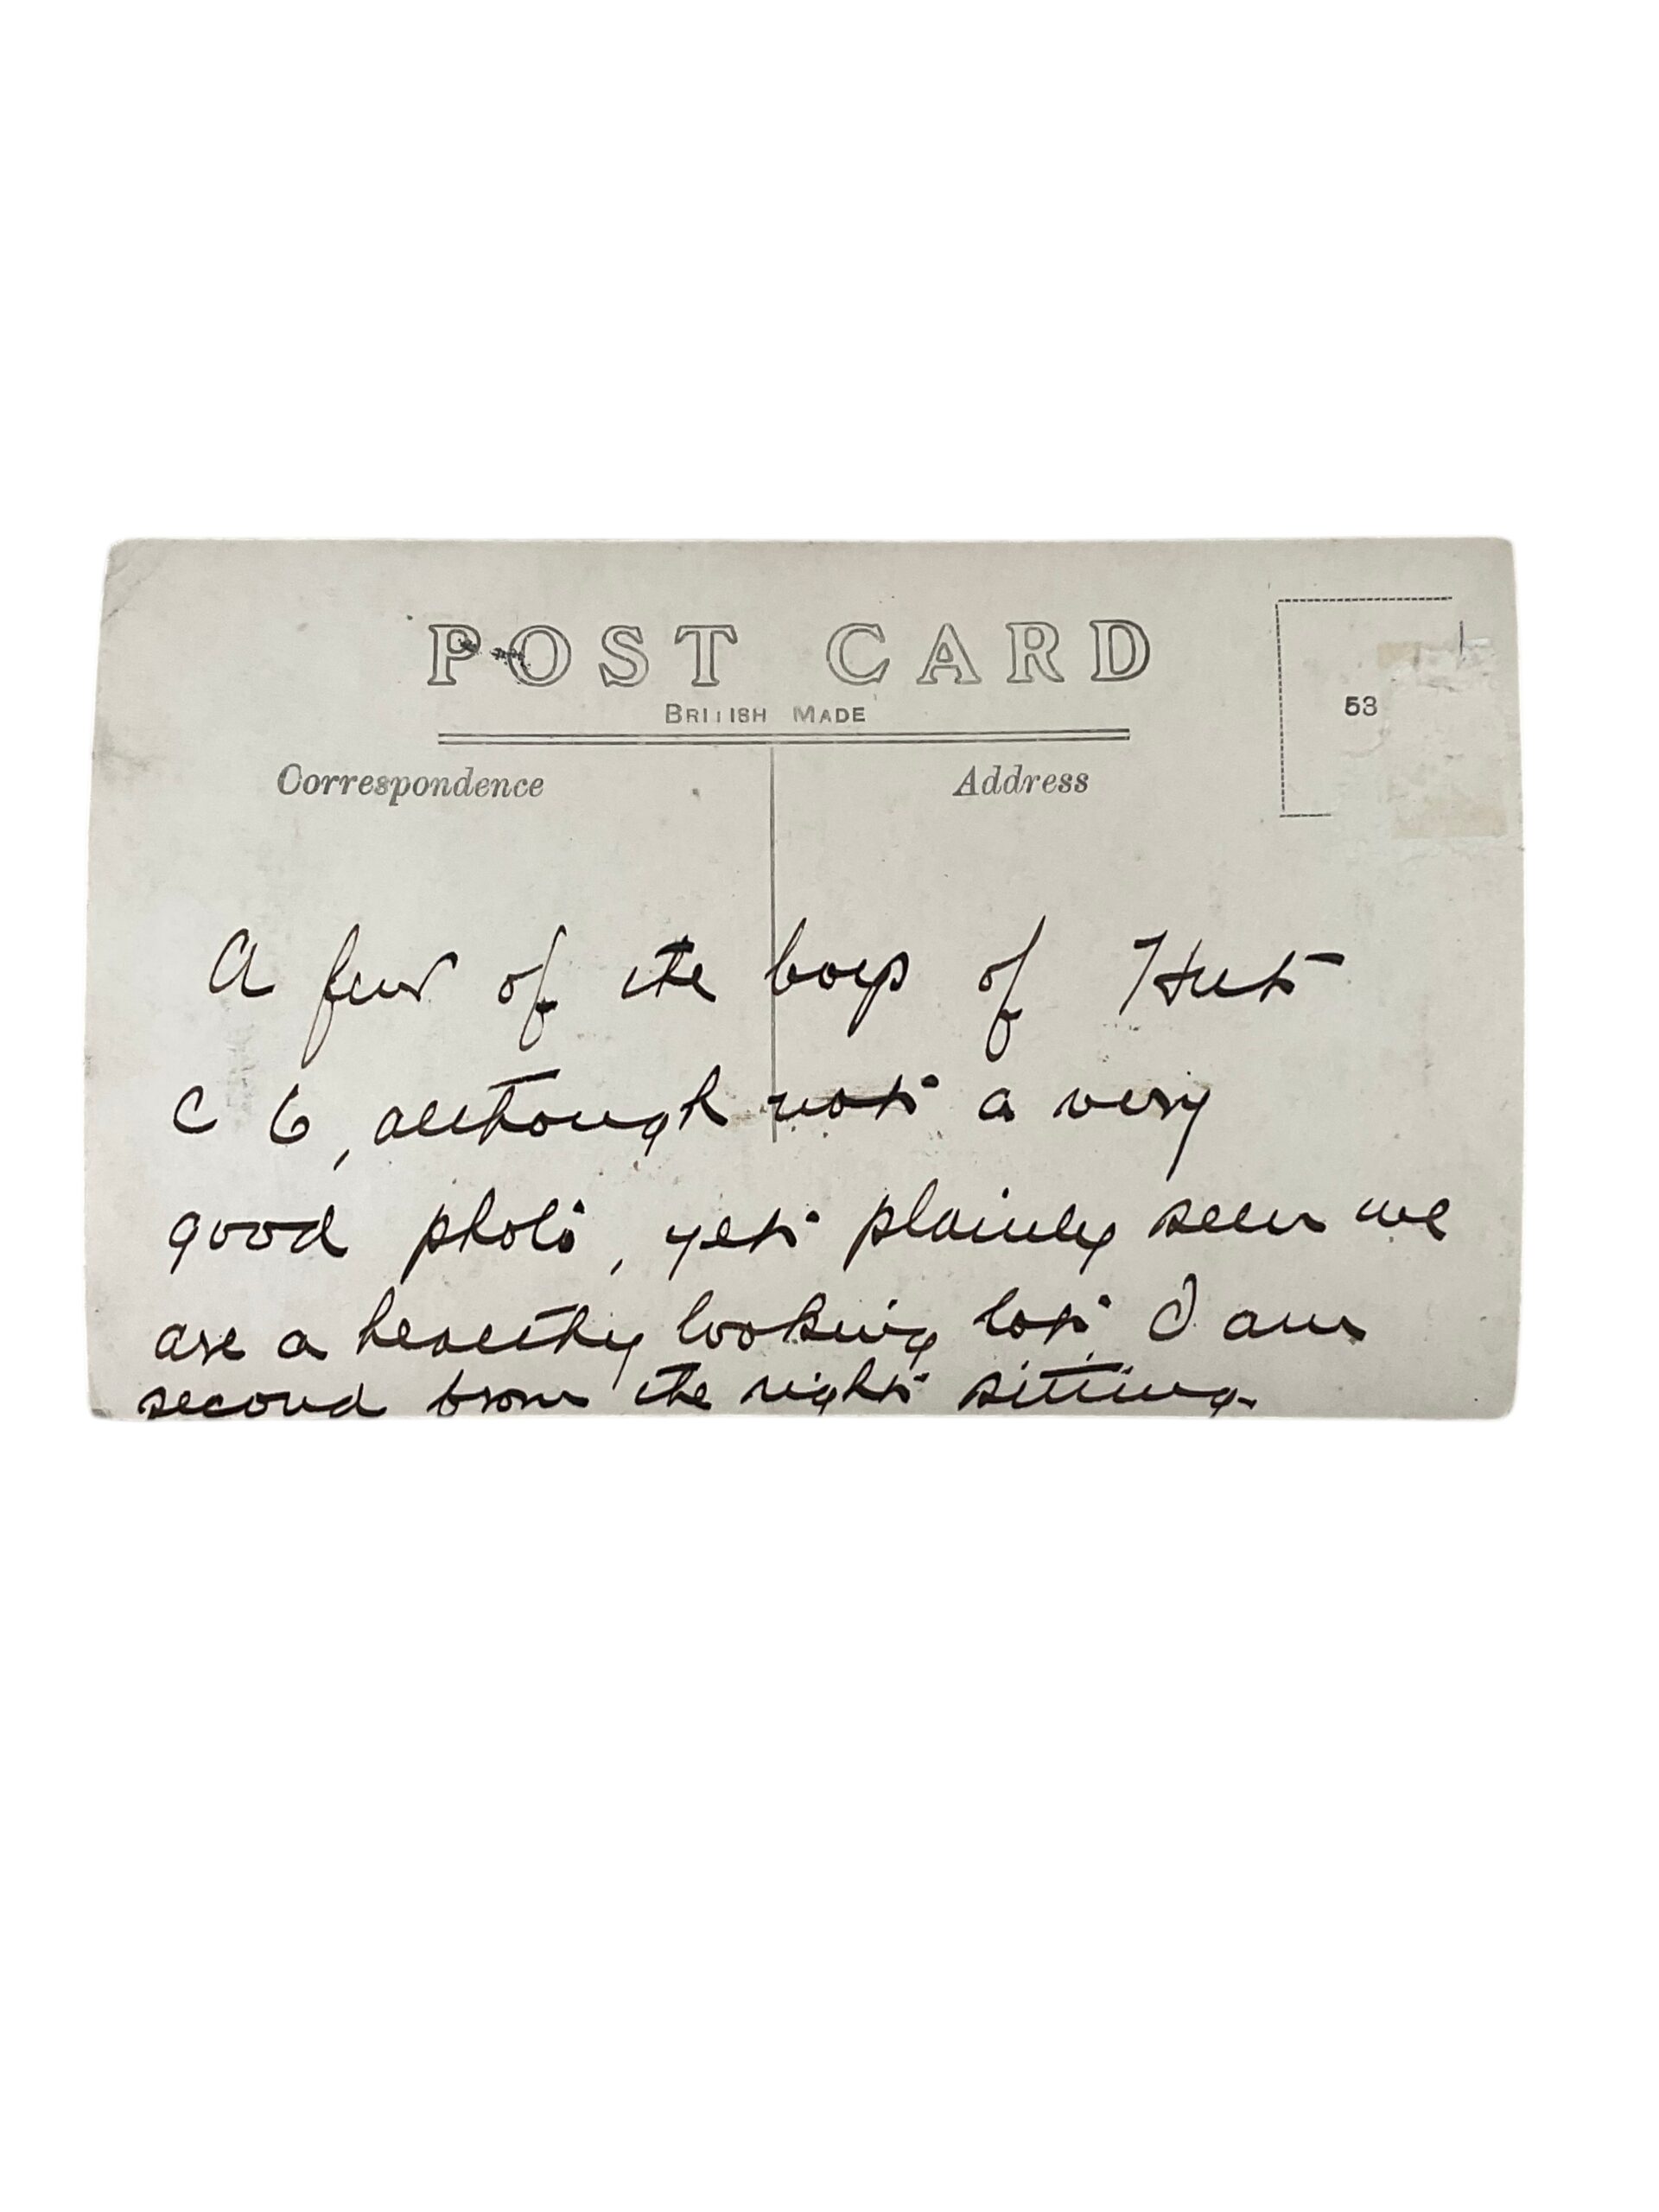 POST CARD
BRITISH MADE
Correspondence
Address
53
A few of the boys of Hut
C 6, although not a very
good photo, yet plainly seen we
are a healthy looking lot I am
second from the right sitting.